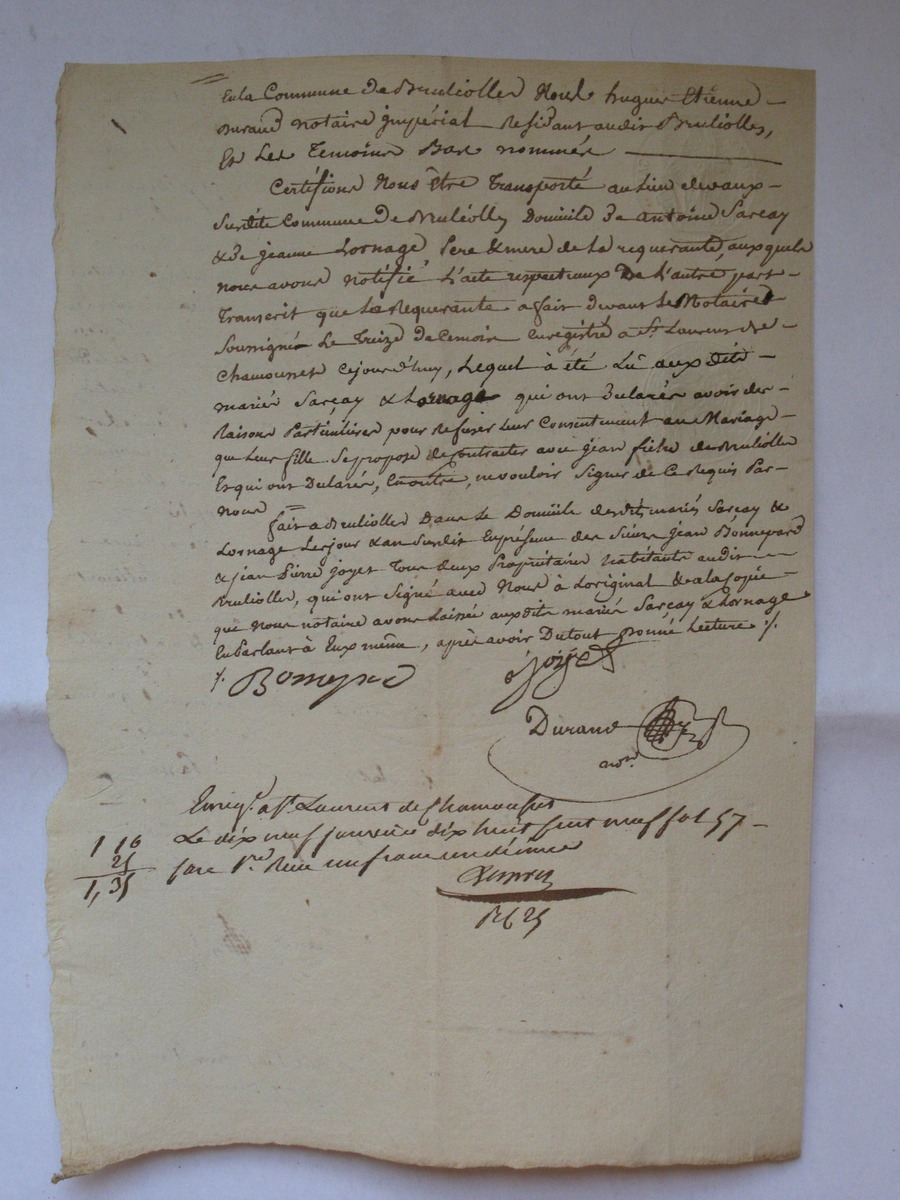 En la Commune de Brulliolles Nous hugues Etienne
Durand notaire jmpérial Résidant audit Brulioles,
Et Les Temoins Bas nommés
Certifions Nous être Transporté au Lieu de vaux
Susdite Commune de Brulëolles Domicile de antoine Sarcay
& de jeanne Lornage, Pere & mere de La requerante, auxquels
nous avons notifié L'acte respectueux De L'autre part
Transcrit que La Requerante a fait devant Le Notaire
Soussigné Le Treize du Cemois Enregistré a St. Laurent de
Chamousset Cejourd'huy, Lequel à été Lû aux dits
mariés Sarçay & Lornage qui ont Déclarés avoir des
Raisons Particulières pour Refuser Leur Consentement au Mariage
que Leur fille Se propose de Contracter avec jean de Brulioles
Et qui ont Déclarés, En outre, ne vouloir Signer de Ce Requis Par
Nous
fait a Brulioles Dans Le Domicile desdits mariés Sarcay &
Lornage Les jour & an Susdit En présence des Sieurs jean Bonnepard
& jean Pierre joyet Tous deux Propriétaires habitants audit
Brulioles, qui ont Signé avec Nous à L'original & a la Copie
que Nous notaire avons Laissée auxdits mariés Sarcay & Lornage
En Parlant à Eux même, après avoir Du tout Donné Lecture ./.
joyet
Durand
not.re
Enreg.é a St. Laurent de Chamousset
Le dix neuf janvier dix huit Cent neuf fol 57
1 10
Case 1.re Reçu un franc un décime
25
1,35